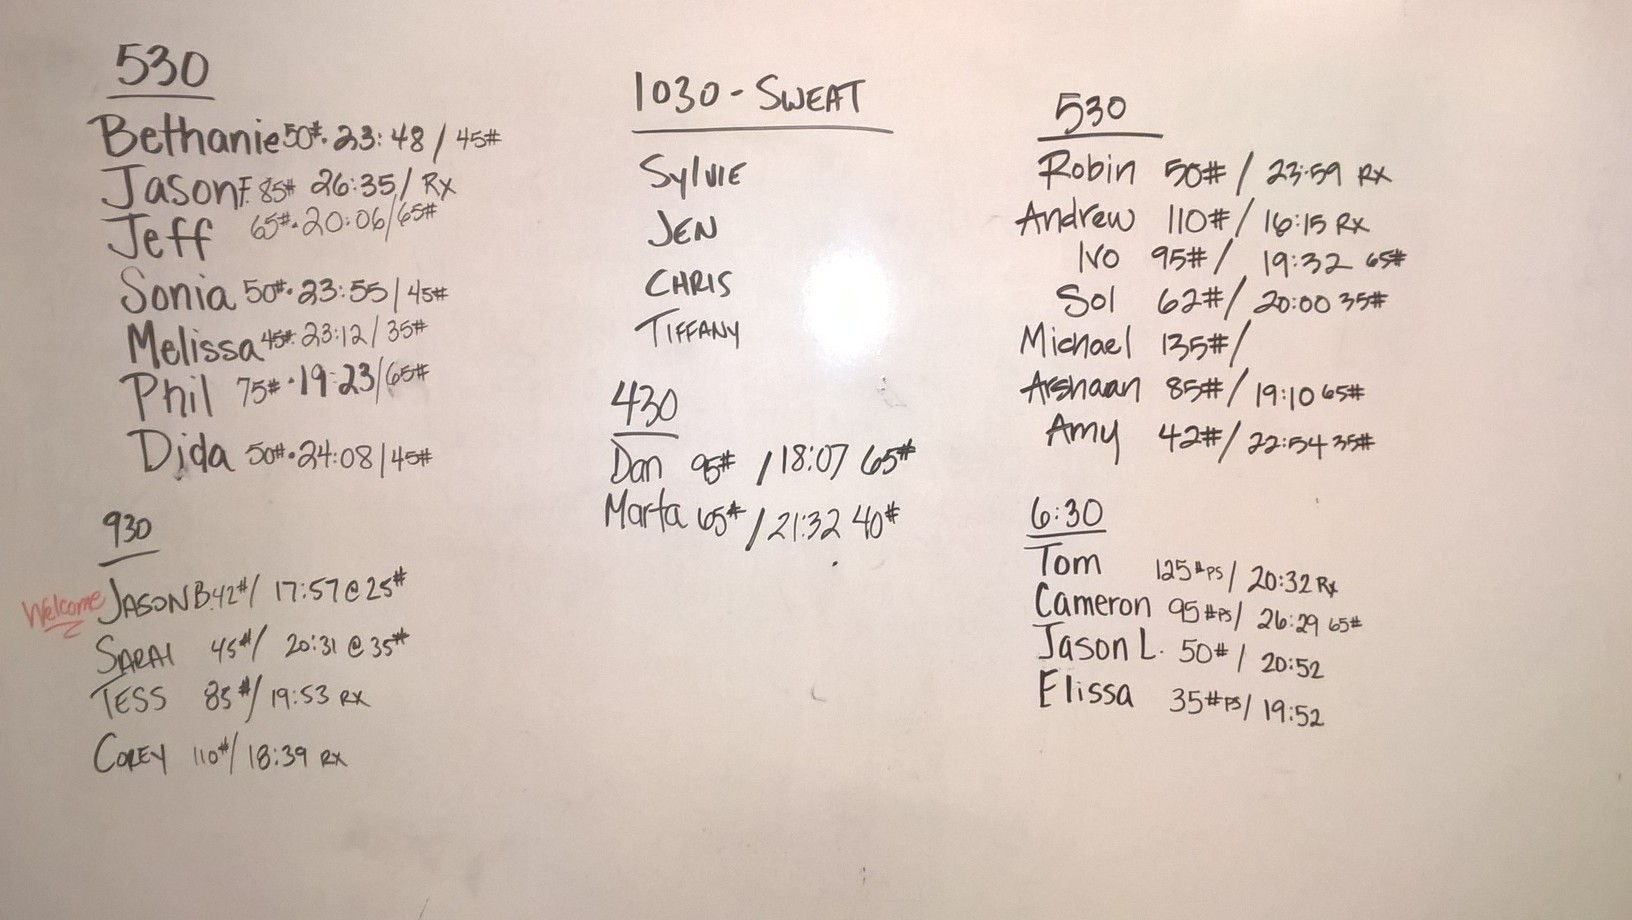 530
Bethanie 50#. 23:48 / 45#
Jason F. 85# 26:35 / Rx
Jeff 65#. 20:06/65#
Sonia 50#. 23:55 / 45#
Melissa 45#. 23:12 / 35#
Phil 75#. 19:23/65#
Dida 50#. 24:08 / 45#
930
Welcome JASON B. 42#/ 17:57 @ 25#
SARAI 45#/ 20:31 @ 35#
TESS 85#/ 19:53 RX
COREY 110#/ 18:39 RX
1030 - SWEAT
SYLVIE
JEN
CHRIS
TIFFANY
430
Dan 95# / 18:07 65#
Marta 65# / 21:32 40#
530
Robin 50# / 23:59 Rx
Andrew 110# / 16:15 Rx
IVO 95# / 19:32 65#
Sol 62# / 20:00 35#
Michael 135# /
Arshaan 85# / 19:10 65#
Amy 42# / 22:54 35#
6:30
Tom 125#PS / 20:32 Rx
Cameron 95#PS / 26:29 65#
Jason L. 50# / 20:52
Elissa 35#PS / 19:52